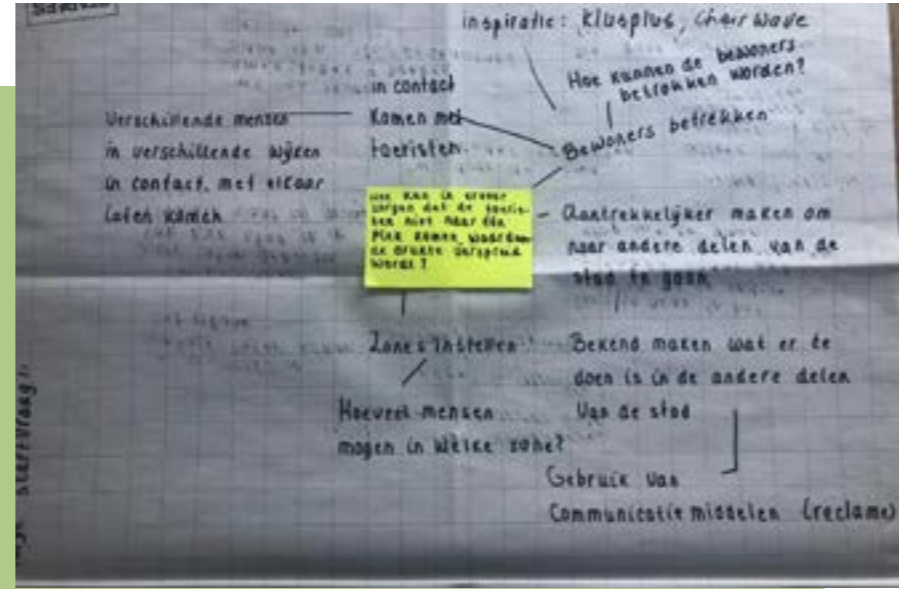 inspiratie: Klusplus, Chair wave
Hoe kunnen de bewoners
betrokken worden?
in contact
komen met
toeristen
Bewoners betrekken
Verschillende mensen
in verschillende wijken
in contact met elkaar
laten komen
Hoe kan ik ervoor
zorgen dat de toeris-
ten niet naar één
plek komen, waardoor
de drukte verspreid
wordt?
Aantrekkelijker maken om
naar andere delen van de
stad te gaan
Zones instellen
Hoeveel mensen
mogen in welke zone?
Bekend maken wat er te
doen is in de andere delen
van de stad
Gebruik van
Communicatie middelen (reclame)
startvraag: